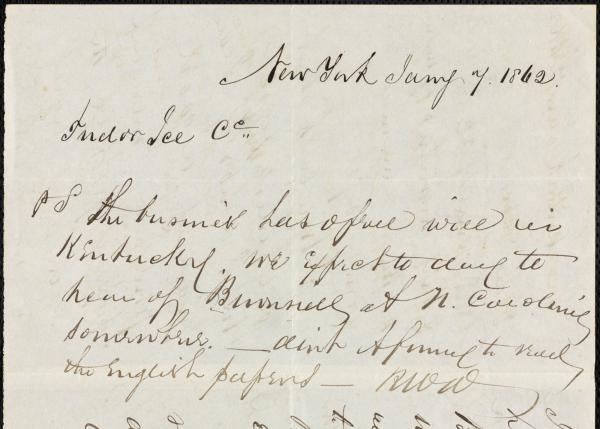 New York Jany 7. 1862.
Tudor Ice Co
P S The business has opened well in
Kentucky. we expect to day to
hear of Burnside at N. Carolina
somewhere. — aint it funny to read
the English papers —